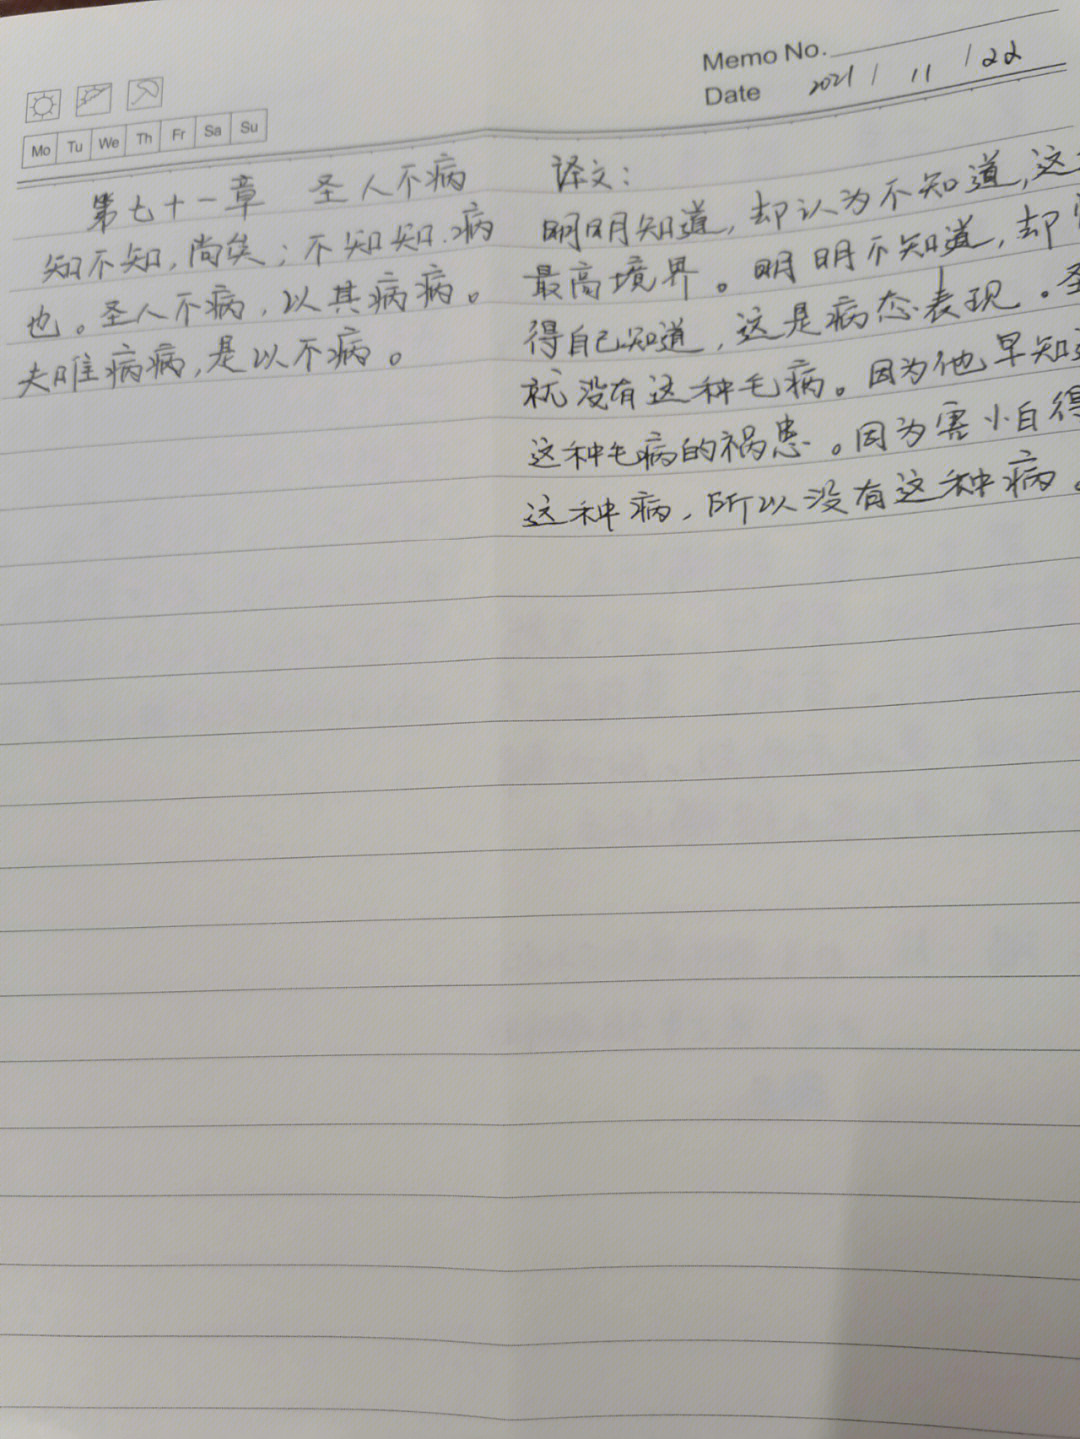 Memo No.
Date 2021 / 11 / 22
Mo Tu We Th Fr Sa Su
第七十一章 圣人不病
知不知,尚矣;不知知.病
也。圣人不病,以其病病。
夫唯病病,是以不病。
译文:
明明知道,却认为不知道,这
最高境界。明明不知道,却
得自己知道,这是病态表现。圣
就没有这种毛病。因为他早知道
这种毛病的祸患。因为害小自得
这种病,所以没有这种病。